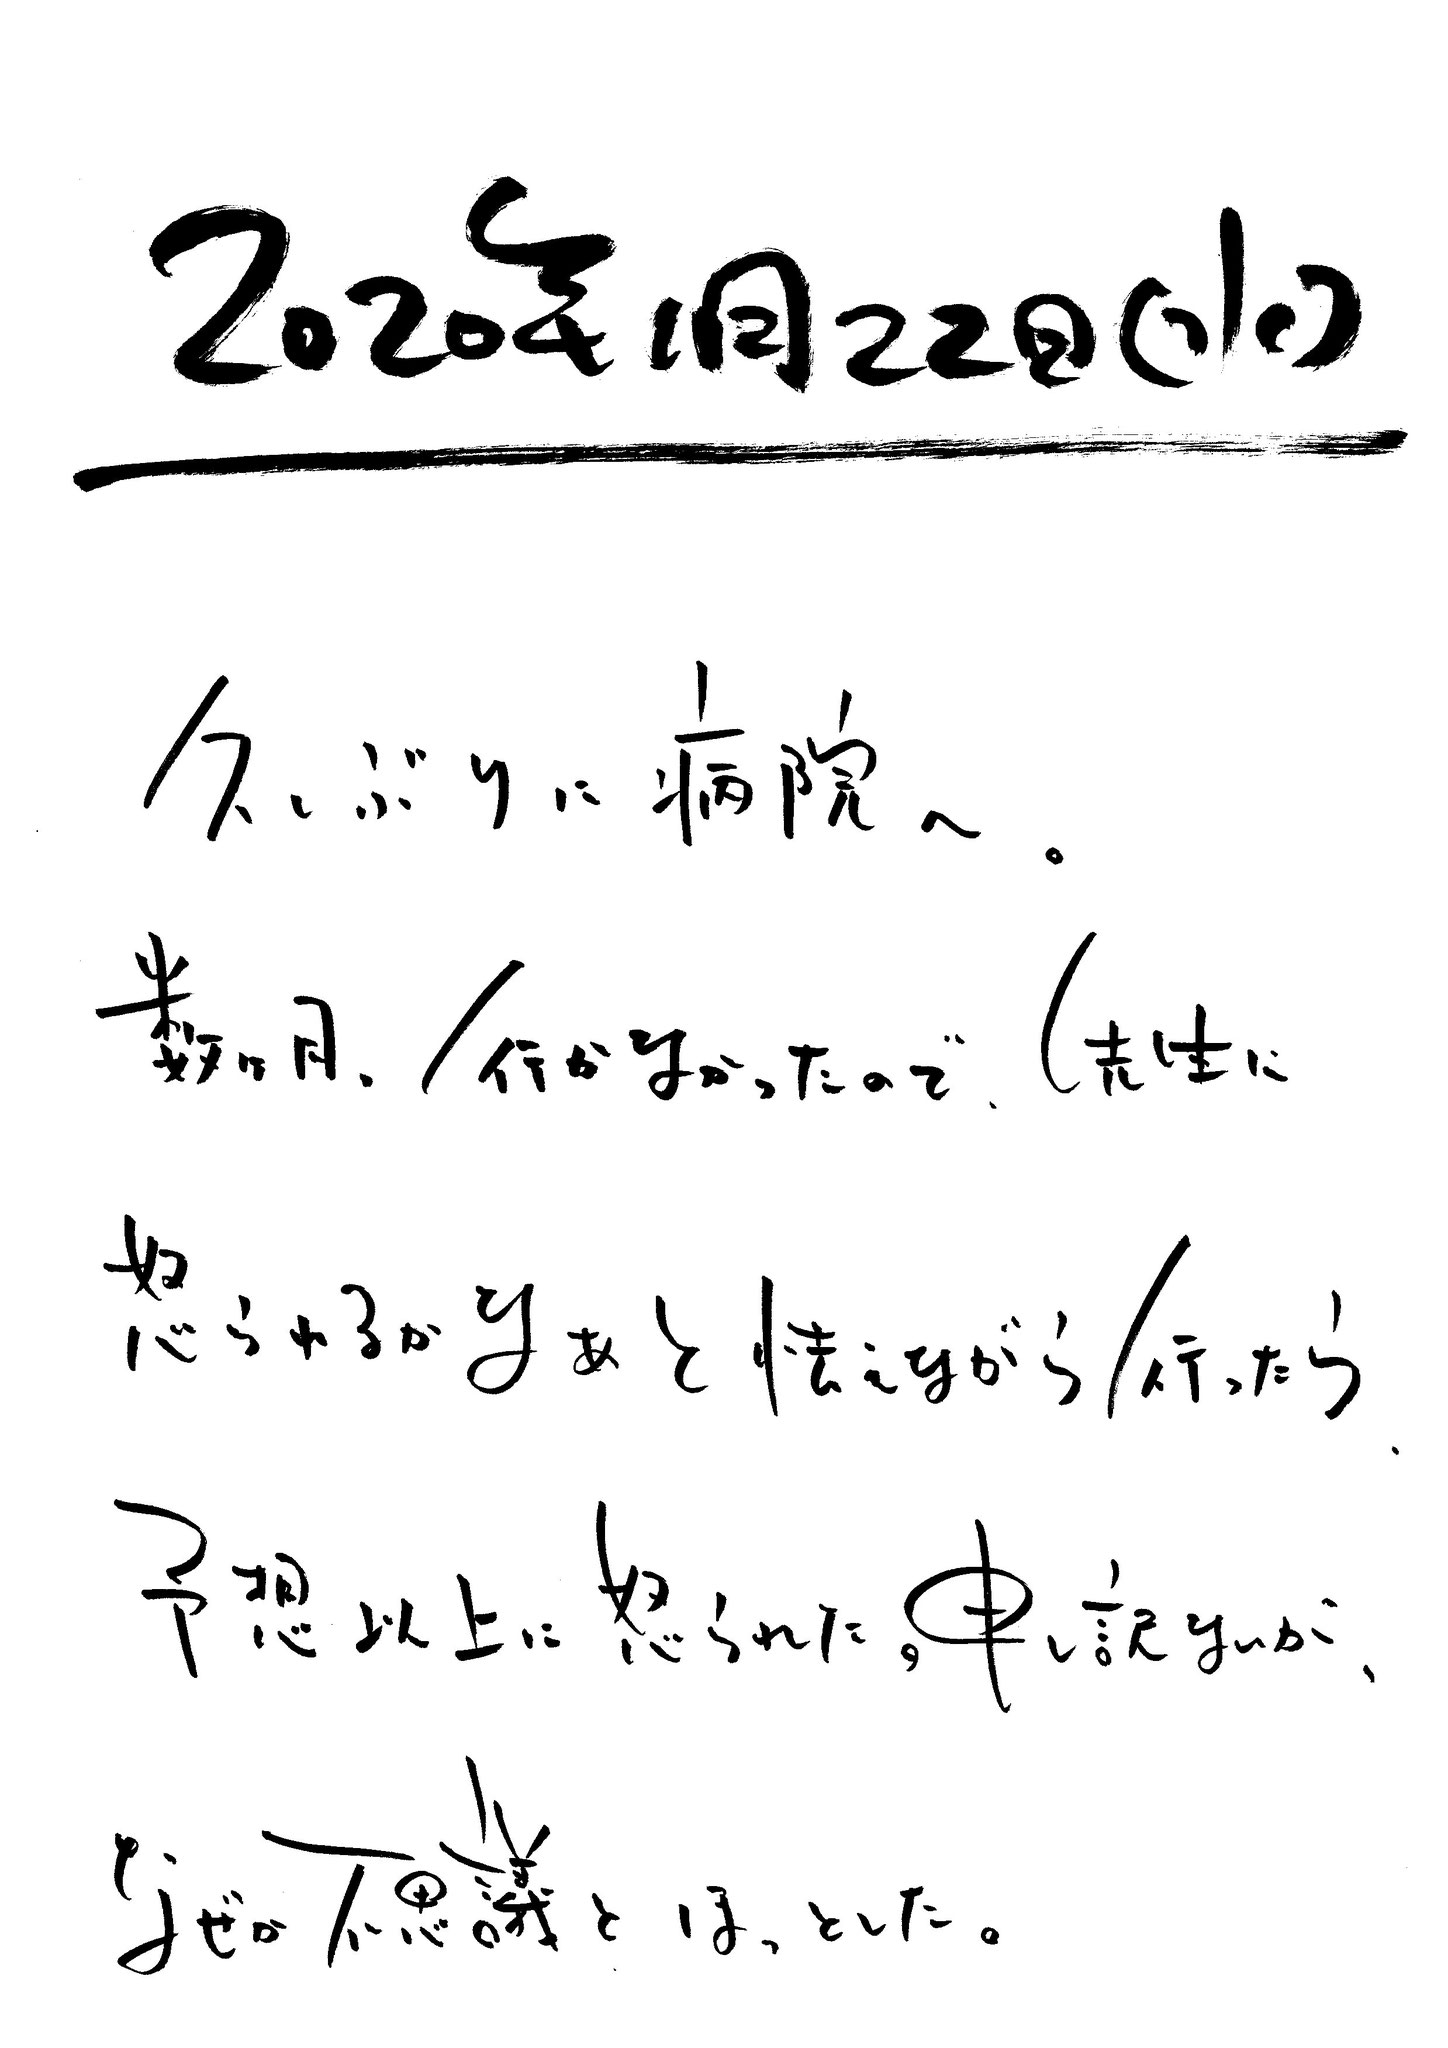 2020年1月22日(水)
久しぶりに病院へ。
数ヶ月、行かなかったので、先生に
怒られるかなぁと怯えながら行ったら、
予想以上に怒られた。申し訳ないが、
なぜか不思議とほっとした。